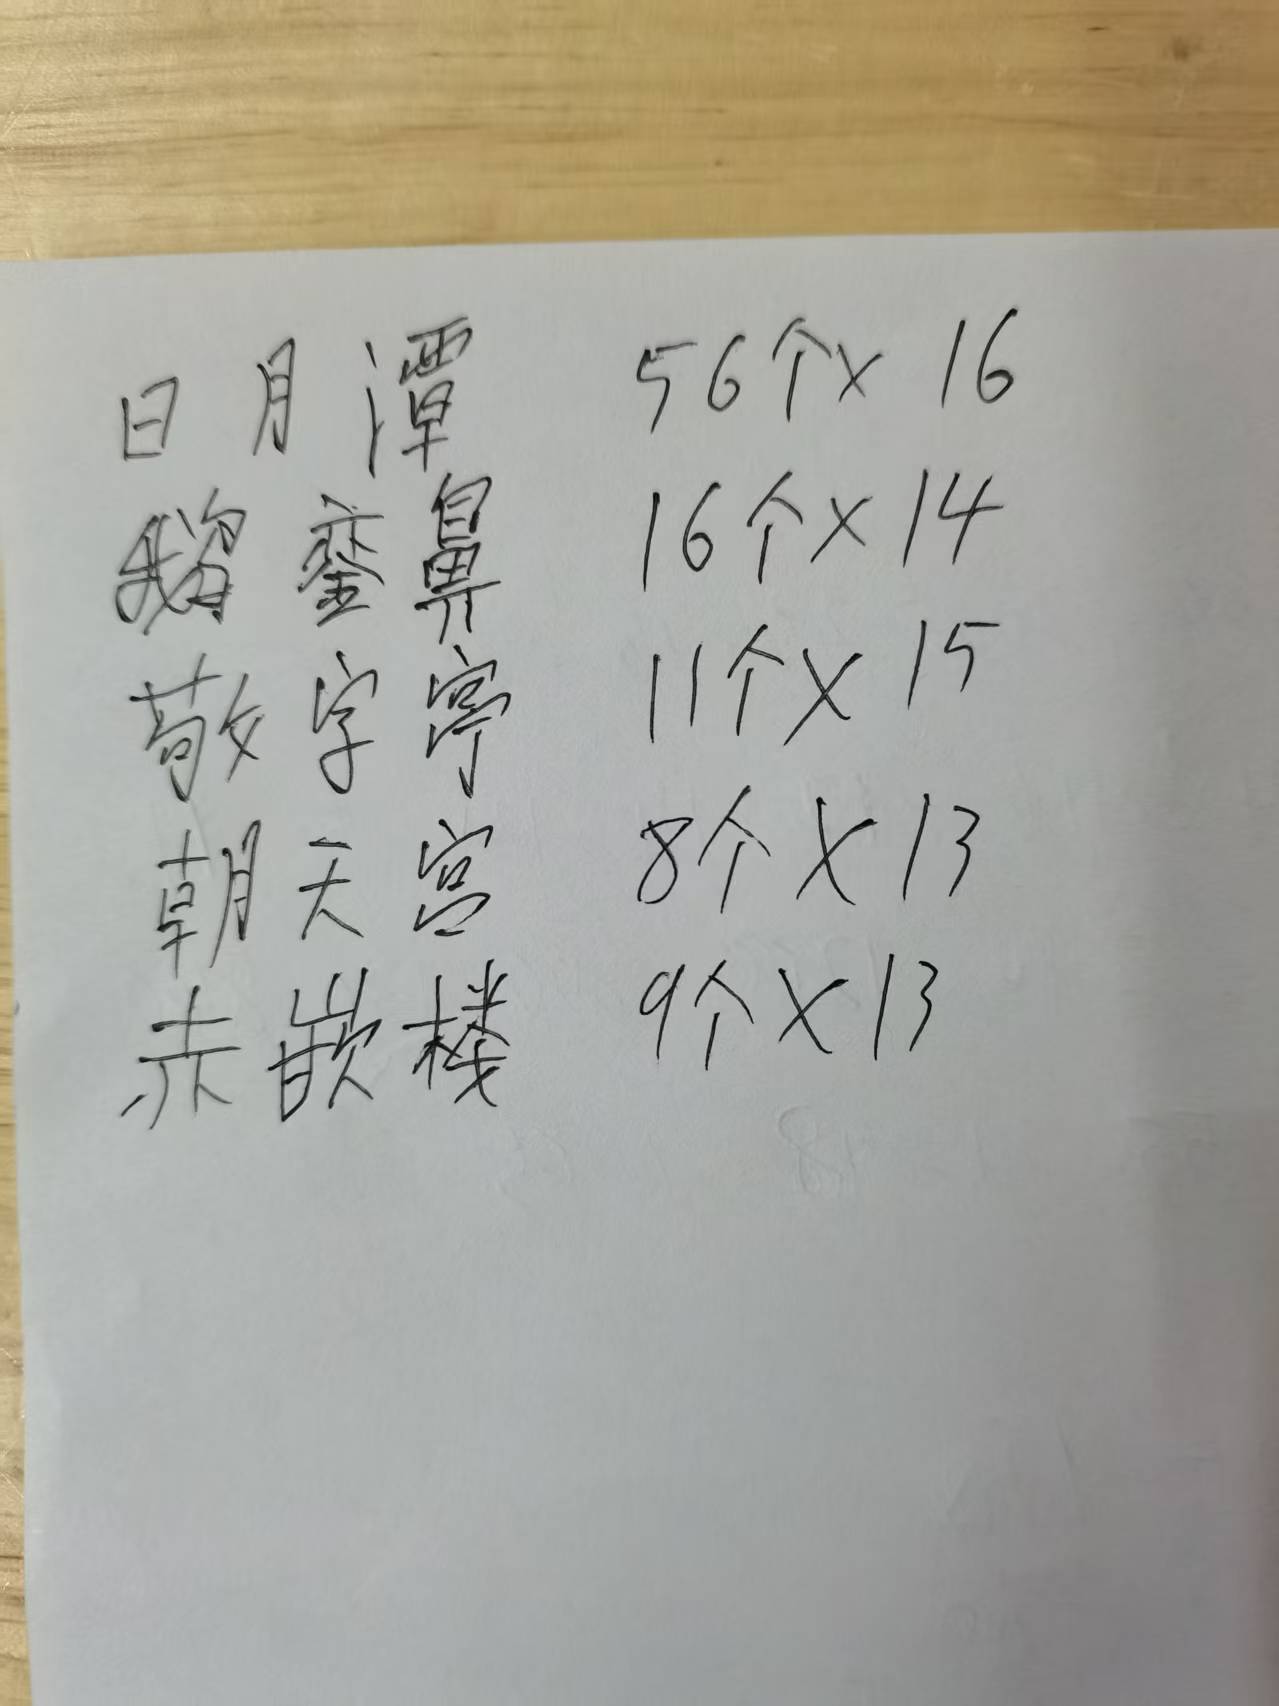 日月潭 56个×16
鵝銮鼻 16个×14
敬字亭 11个×15
朝天宫 8个×13
赤嵌楼 9个×13